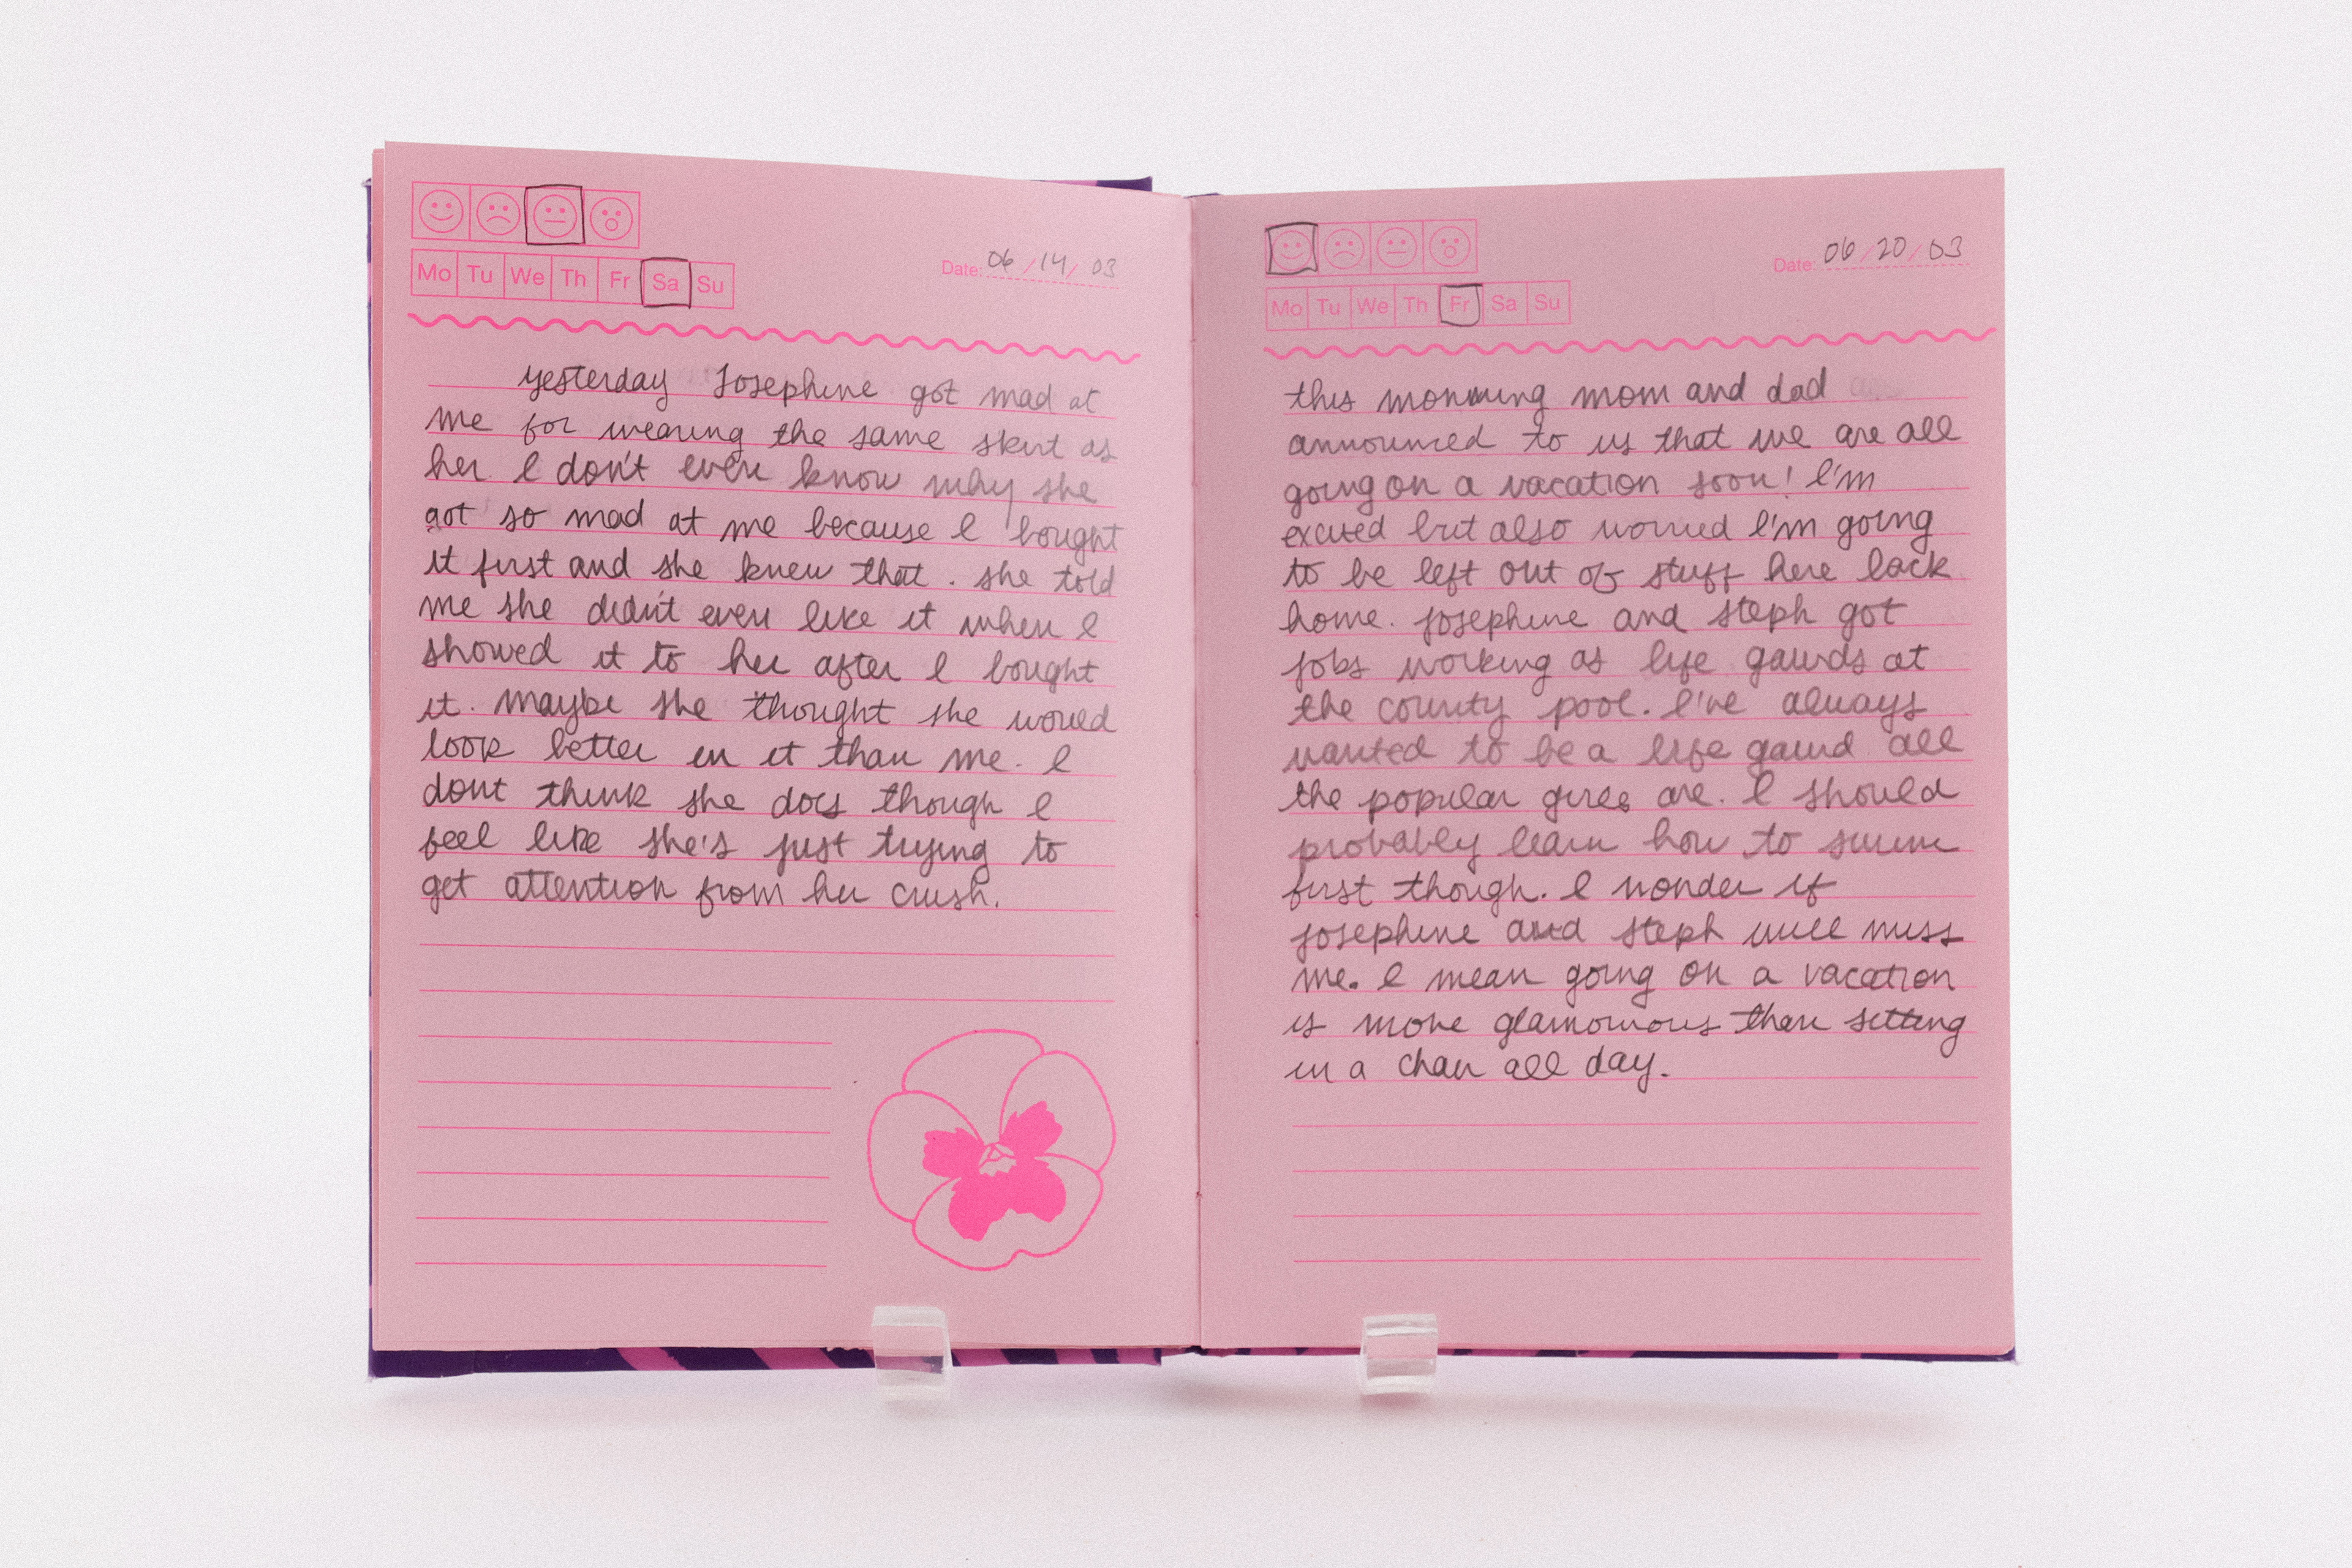 Mo Tu We Th Fr Sa Su
Date: 06/14/03
yesterday Josephine got mad at
me for wearing the same skirt as
her. I don't even know why she
got so mad at me because I bought
it first and she knew that. she told
me she didn't even like it when I
showed it to her after I bought
it. maybe she thought she would
look better in it than me. I
dont think she does though I
feel like she's just trying to
get attention from her crush.
Mo Tu We Th Fr Sa Su
Date: 06/20/03
this morning mom and dad
announced to us that we are all
going on a vacation soon! I'm
excited but also worried I'm going
to be left out of stuff here back
home. Josephine and steph got
jobs working as life gaurds at
the county pool. I've always
wanted to be a life gaurd all
the popular girls are. I should
probably learn how to swim
first though. I wonder if
Josephine and steph will miss
me. I mean going on a vacation
is more glamorous than sitting
in a chair all day.